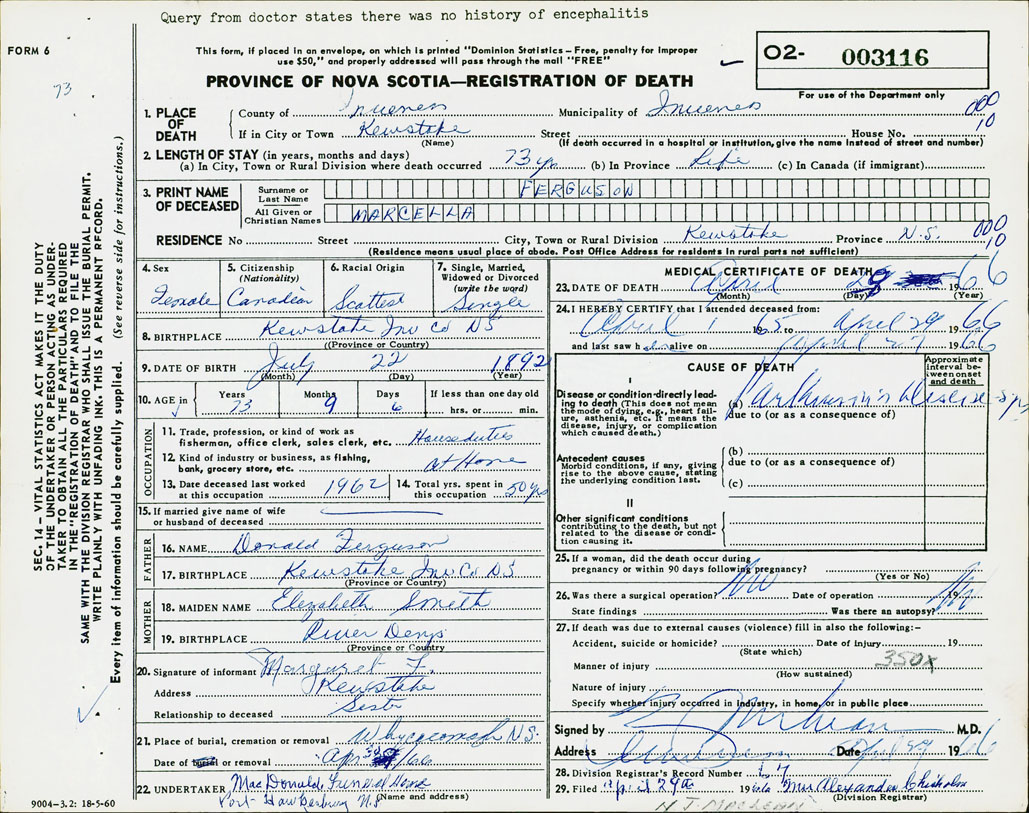 Query from doctor states there was no history of encephalitis
FORM 6
73
This form, if placed in an envelope, on which is printed "Dominion Statistics – Free, penalty for improper
use $50," and properly addressed will pass through the mail "FREE"
O2- 003116
For use of the Department only
PROVINCE OF NOVA SCOTIA—REGISTRATION OF DEATH
SEC. 14 – VITAL STATISTICS ACT MAKES IT THE DUTY
OF THE UNDERTAKER OR PERSON ACTING AS UNDER-
TAKER TO OBTAIN ALL THE PARTICULARS REQUIRED
IN THE "REGISTRATION OF DEATH" AND TO FILE THE
SAME WITH THE DIVISION REGISTRAR WHO SHALL ISSUE THE BURIAL PERMIT.
WRITE PLAINLY WITH UNFADING INK. THIS IS A PERMANENT RECORD.
Every item of information should be carefully supplied. (See reverse side for instructions.)
1. PLACE OF DEATH
County of Inverness Municipality of Inverness 000
10
If in City or Town Kewstoke Street House No.
(Name) (If death occurred in a hospital or institution, give the name instead of street and number)
2. LENGTH OF STAY (in years, months and days)
(a) In City, Town or Rural Division where death occurred 73 yrs (b) In Province Life (c) In Canada (if immigrant)
3. PRINT NAME OF DECEASED
Surname or Last Name FERGUSON
All Given or Christian Names MARCELLA
RESIDENCE No Street City, Town or Rural Division Kewstoke Province N.S. 000
10
(Residence means usual place of abode. Post Office Address for residents in rural parts not sufficient)
4. Sex Female
5. Citizenship (Nationality) Canadian
6. Racial Origin Scottish
7. Single, Married, Widowed or Divorced (write the word) Single
8. BIRTHPLACE Kewstoke Inv Co NS
(Province or Country)
9. DATE OF BIRTH July 22 1892
(Month) (Day) (Year)
10. AGE in Years 73 Months 9 Days 6 If less than one day old
hrs. or min.
OCCUPATION
11. Trade, profession, or kind of work as
fisherman, office clerk, sales clerk, etc. Houseduties
12. Kind of industry or business, as fishing,
bank, grocery store, etc. at Home
13. Date deceased last worked at this occupation 1962 14. Total yrs. spent in this occupation 50 yrs
15. If married give name of wife
or husband of deceased
FATHER
16. NAME Donald Ferguson
17. BIRTHPLACE Kewstoke Inv Co NS
(Province or Country)
MOTHER
18. MAIDEN NAME Elizabeth Smith
19. BIRTHPLACE River Denys
(Province or Country)
20. Signature of informant Margaret F.
Address Kewstoke
Relationship to deceased Sister
21. Place of burial, cremation or removal Whycocomagh N.S.
Date of burial or removal Apr 30/66
22. UNDERTAKER MacDonald Funeral Home
Port Hawkesbury N.S
(Name and address)
9004–3.2: 18-5-60
MEDICAL CERTIFICATE OF DEATH
23. DATE OF DEATH April 28 1966
(Month) (Day) (Year)
24. I HEREBY CERTIFY that I attended deceased from:
April 1 65 to April 29 1966
and last saw h alive on April 27 1966
CAUSE OF DEATH
Approximate interval between onset and death
I
Disease or condition directly lead-
ing to death (This does not mean
the mode of dying, e.g., heart fail-
ure, asthenia, etc. It means the
disease, injury, or complication
which caused death.)
(a) Parkinson's Disease yrs
due to (or as a consequence of)
Antecedent causes
Morbid conditions, if any, giving
rise to the above cause, stating
the underlying condition last.
(b)
due to (or as a consequence of)
(c)
II
Other significant conditions
contributing to the death, but not
related to the disease or condi-
tion causing it.
25. If a woman, did the death occur during
pregnancy or within 90 days following pregnancy?
(Yes or No)
26. Was there a surgical operation? No Date of operation 19
State findings Was there an autopsy? No
27. If death was due to external causes (violence) fill in also the following:–
Accident, suicide or homicide? Date of Injury 19
(State which)
Manner of injury 350X
(How sustained)
Nature of injury
Specify whether injury occurred in industry, in home, or in public place
Signed by M.D.
Address Date April 29 1966
28. Division Registrar's Record Number 67
29. Filed April 29th 1966 Mrs Alexander Chisholm
(Division Registrar)
N J MacLEAN